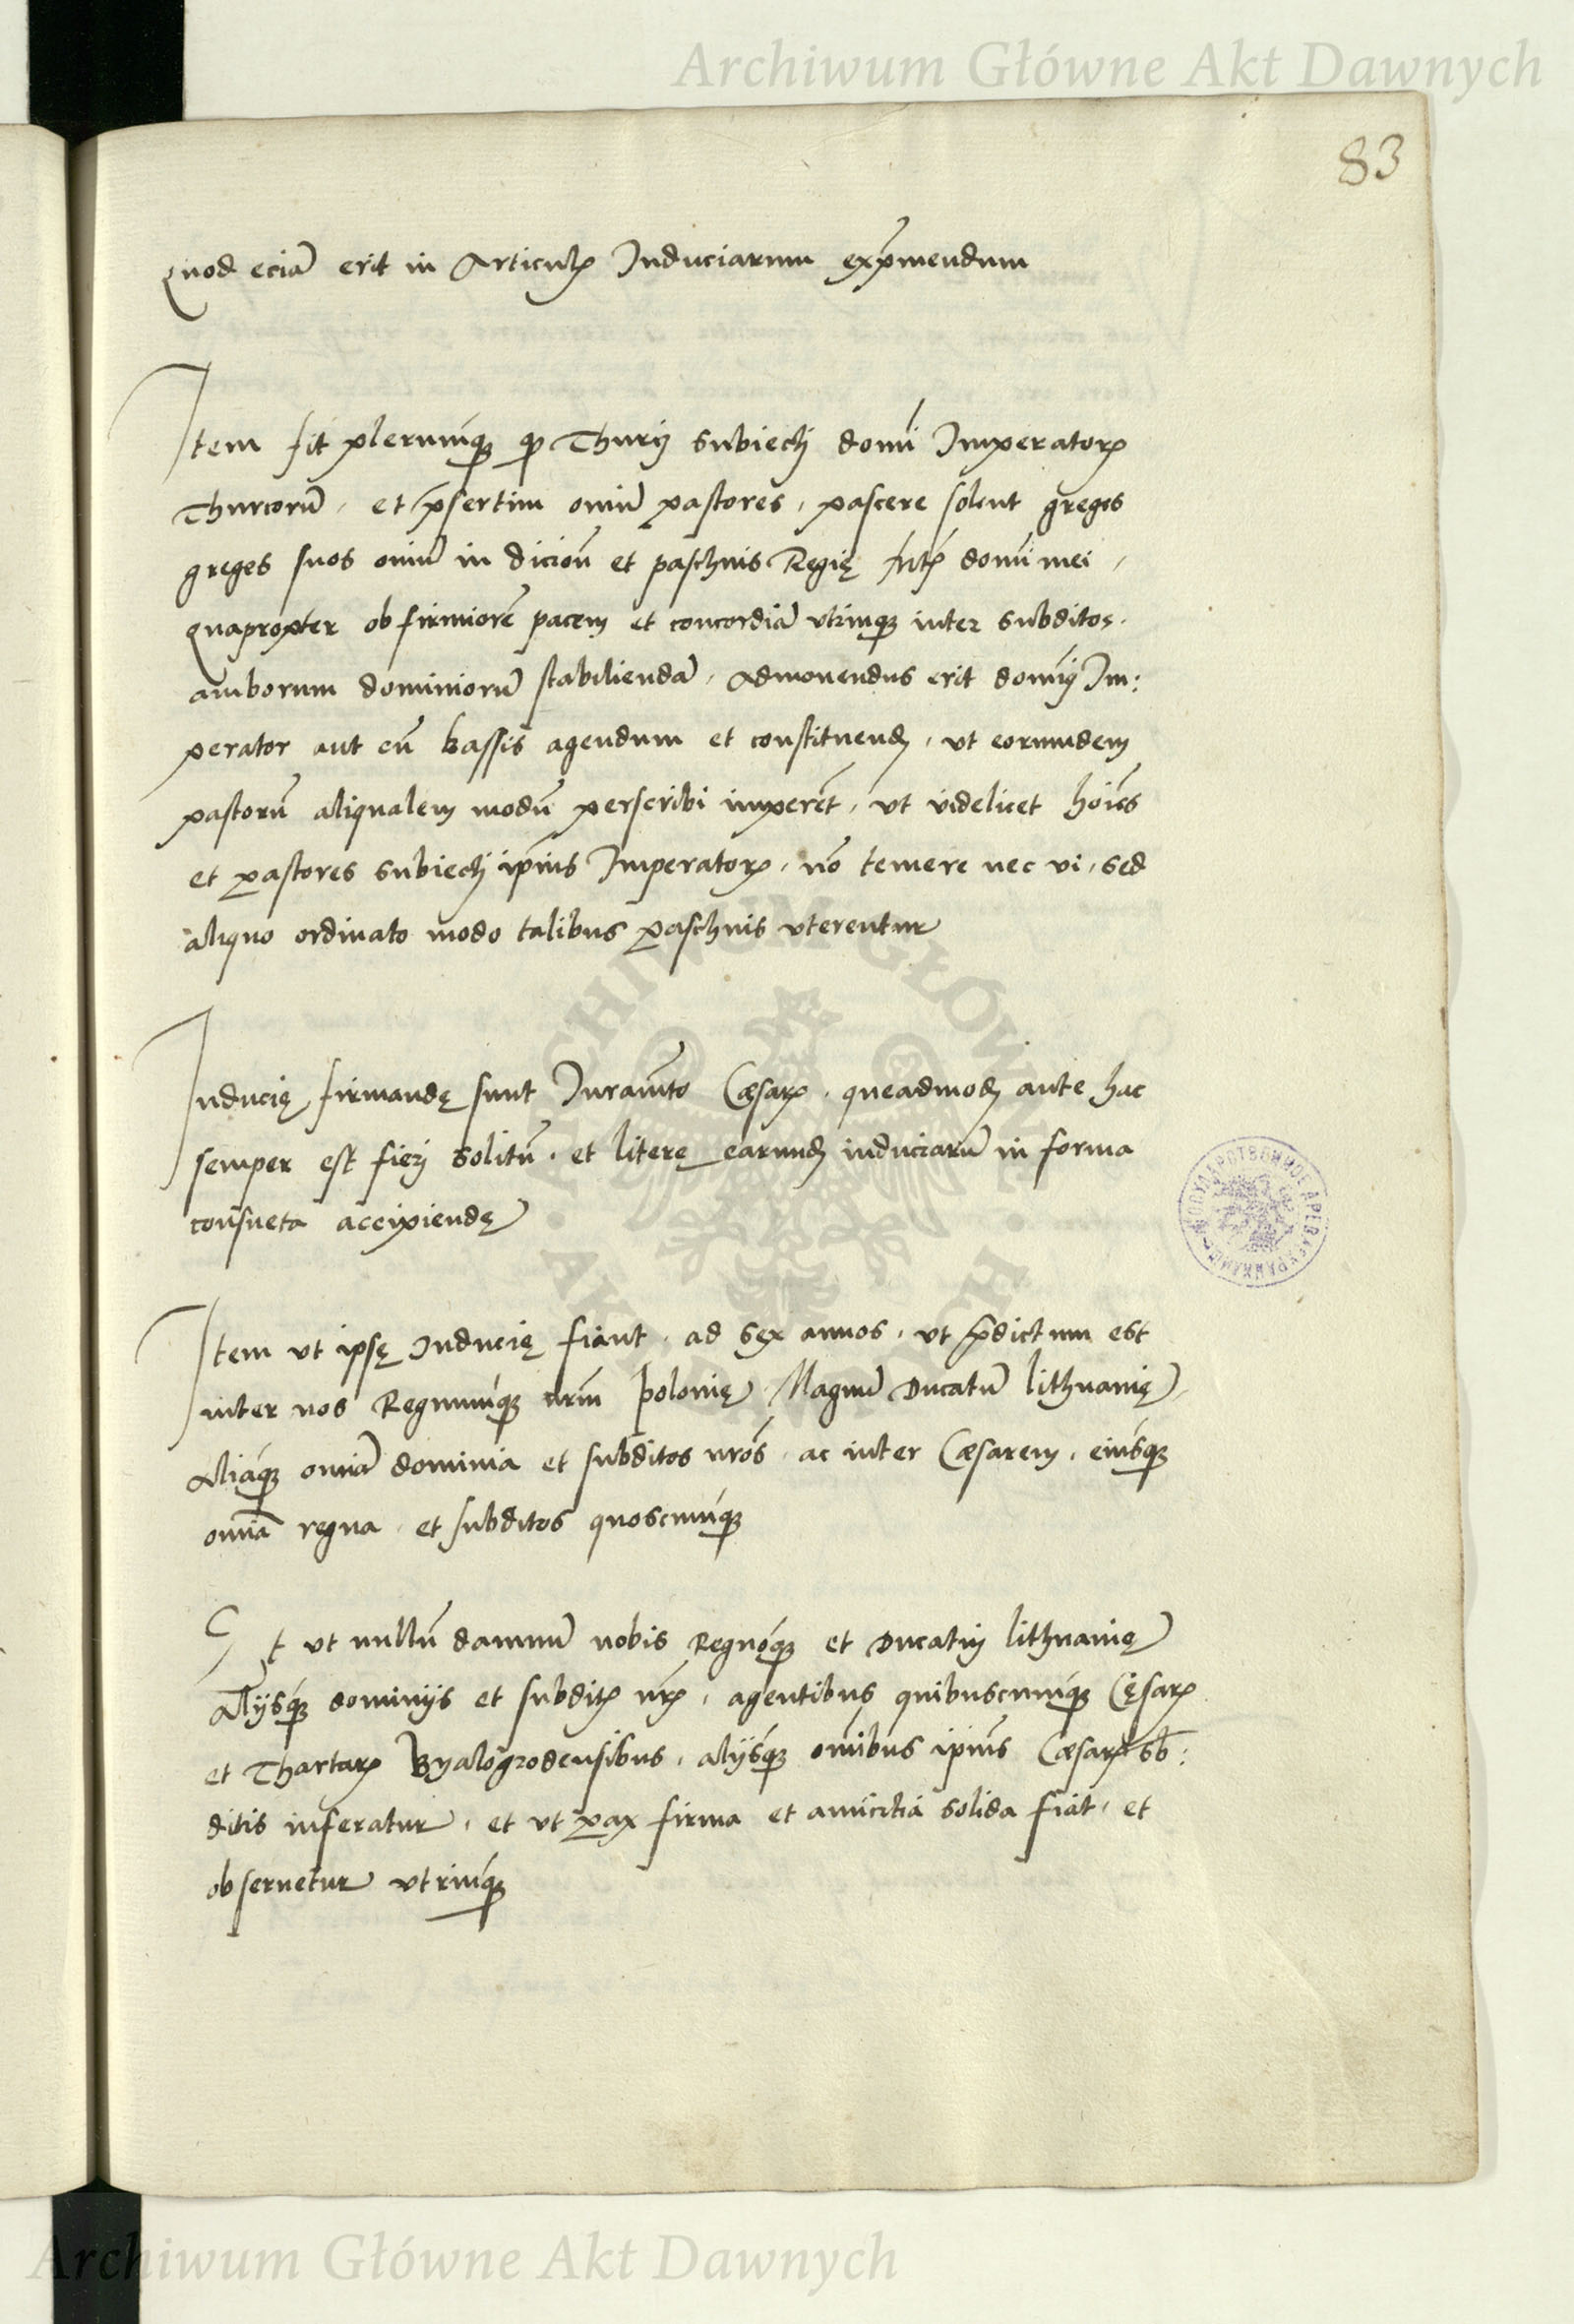 Archiwum Główne Akt Dawnych
83
Quod eciã erit in Articulis Induciarum exp̃mendum
Item fit plerunq́ꝫ ꝙ Thurci subiecti domĩ Imperatoris
Thurcorũ, et p̃sertim oviũ pastores, pascere solent greges
greges suos oviũ in dicioñ et paschuis Regię domĩ mei,
quapropter ob firmiorẽ pacem et concordiã utrinqꝫ inter subditos.
amborum dominiorũ stabiliendã, Admonendus erit domiñ Im:
perator aut cũ bassis agendum et constituend, ut eorundem
pastorũ aliqualem modũ perscribi imperẽt, ut videlicet hoĩes
et pastores subiecti ip̃ius Imperatoris, nõ temere nec vi, sed
aliquo ordinato modo talibus paschuis uterentur
Inducię firmandę sunt Juram̃to Cæsaris, queadmod ante hac
semper est fieri solitũ, et literę earund induciarũ in forma
consueta accipiendę
Item ut ipsę Inducię fiant, ad sex annos, ut p̃dictum est
inter nos Regnumq́ꝫ nr̃m Polonię, Magnũ Ducatũ Lithuanię,
Aliaq́ꝫ omniã dominia et subditos nr̃os, ac inter Cæsarem, eiusq́ꝫ
omniã regna, et subditos quoscunq́ꝫ
Et ut nullũ damnũ nobis Regnoq́ꝫ et Ducatui Lithuanię
Alijsq́ꝫ dominijs et subditis nr̃is, agentibus quibuscunq́ꝫ Cęsaris
et Thartaris Byalogrodensibus, alijsq́ꝫ om̃ibus ip̃ius Cæsaris sb̃:
ditis inferatur, et ut pax firma et amicitia solida fiat, et
observetur utrinq́ꝫ
Archiwum Główne Akt Dawnych